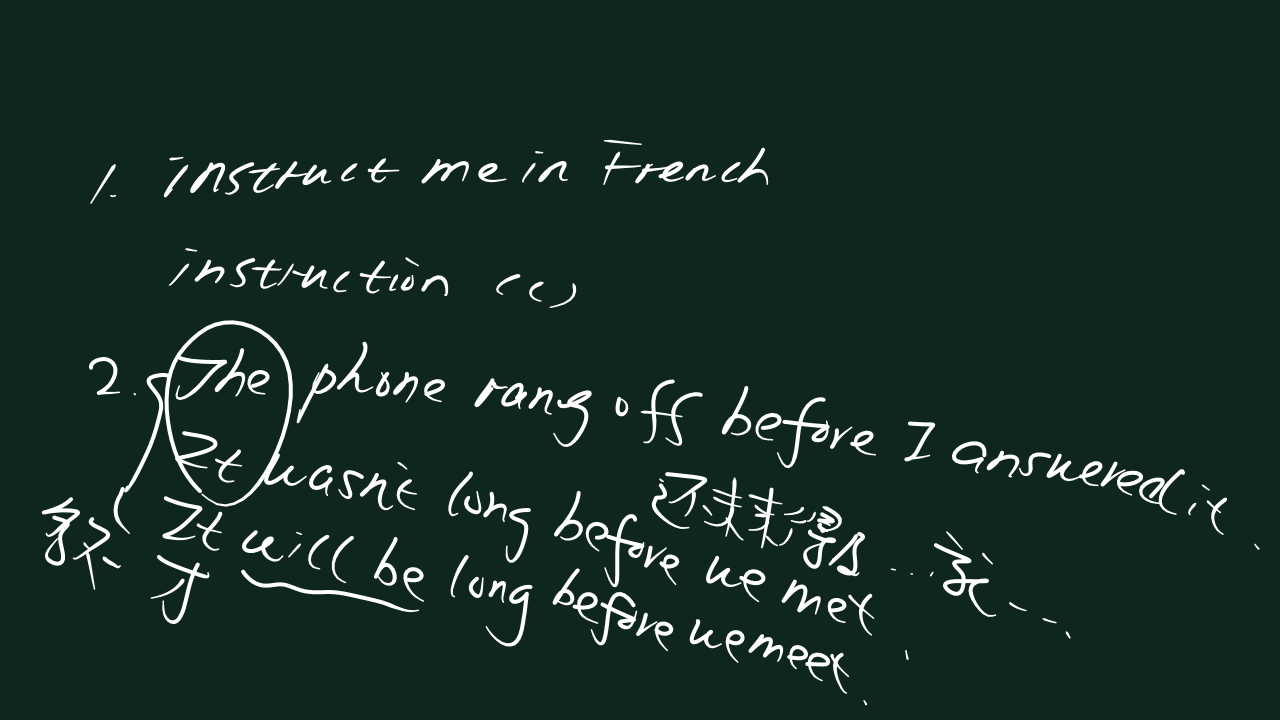 1. instruct me in French
instruction (c)
2. The phone rang off before I answered it.
还未来得及……就……
It wasn't long before we met.
It will be long before we meet.
才